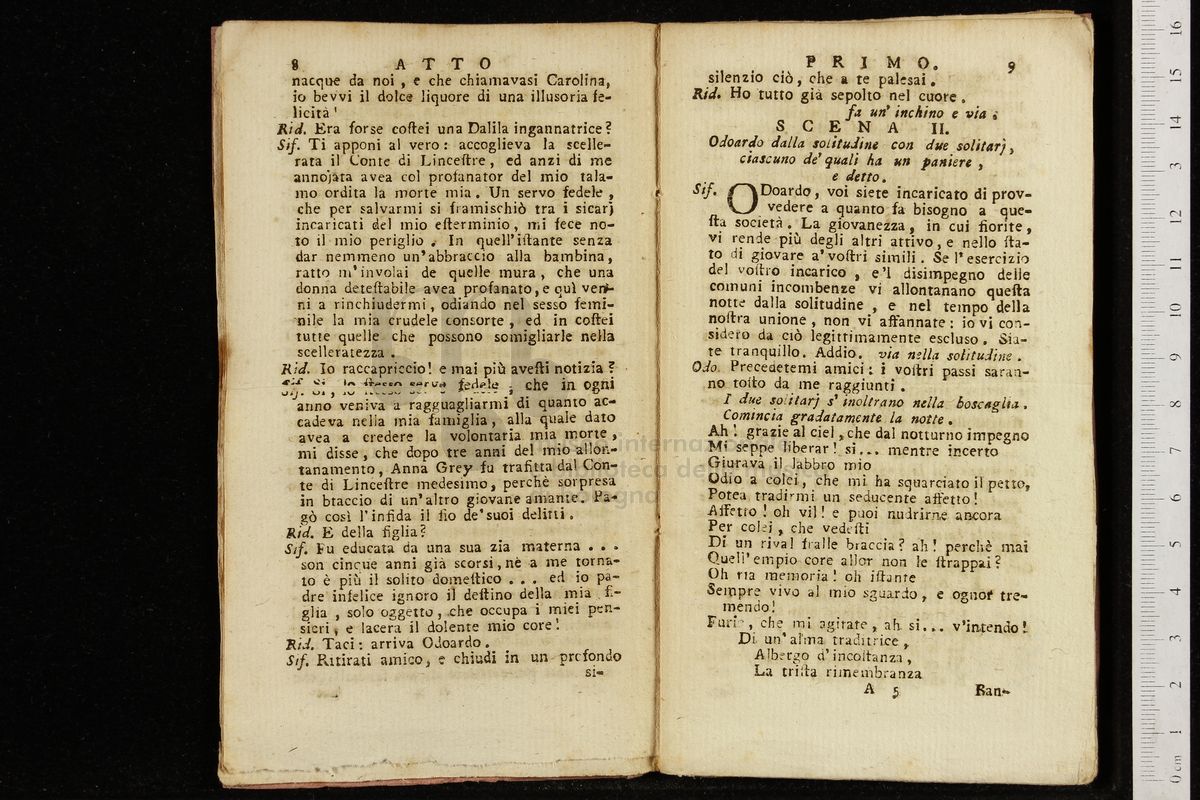 8 ATTO
nacque da noi, e che chiamavasi Carolina,
io bevvi il dolce liquore di una illusoria fe-
licità!
Rid. Era forse coſtei una Dalila ingannatrice?
Sif. Ti apponi al vero: accoglieva la scelle-
rata il Conte di Linceſtre, ed anzi di me
annojata avea col profanator del mio tala-
mo ordita la morte mia. Un servo fedele,
che per salvarmi si framischiò tra i sicarj
incaricati del mio eſterminio, mi fece no-
to il mio periglio. In quell'iſtante senza
dar nemmeno un'abbraccio alla bambina,
ratto m'involai de quelle mura, che una
donna deteſtabile avea profanato, e quì ven-
ni a rinchiudermi, odiando nel sesso femi-
nile la mia crudele consorte, ed in coſtei
tutte quelle che possono somigliarle nella
scelleratezza.
Rid. Io raccapriccio! e mai più aveſti notizia?
Sif. Sì, lo ſtesso servo fedele, che in ogni
anno veniva a ragguagliarmi di quanto ac-
cadeva nella mia famiglia, alla quale dato
avea a credere la volontaria mia morte,
mi disse, che dopo tre anni del mio allon-
tanamento, Anna Grey fu trafitta dal Con-
te di Linceſtre medesimo, perchè sorpresa
in btaccio di un'altro giovane amante. Pa-
gò così l'infida il fio de'suoi delitti.
Rid. E della figlia?
Sif. Fu educata da una sua zia materna...
son cinque anni già scorsi, nè a me torna-
to è più il solito domeſtico... ed io pa-
dre infelice ignoro il deſtino della mia fi-
glia, solo oggetto, che occupa i miei pen-
sieri, e lacera il dolente mio core!
Rid. Taci: arriva Odoardo.
Sif. Ritirati amico, e chiudi in un profondo
si-
PRIMO. 9
silenzio ciò, che a te palesai.
Rid. Ho tutto già sepolto nel cuore.
fa un' inchino e via.
SCENA II.
Odoardo dalla solitudine con due solitarj,
ciascuno de' quali ha un paniere,
e detto.
Sif. ODoardo, voi siete incaricato di prov-
vedere a quanto fa bisogno a que-
ſta società. La giovanezza, in cui fiorite,
vi rende più degli altri attivo, e nello ſta-
to di giovare a'voſtri simili. Se l'esercizio
del voſtro incarico, e'l disimpegno delle
comuni incombenze vi allontanano queſta
notte dalla solitudine, e nel tempo della
noſtra unione, non vi affannate: io vi con-
sidero da ciò legittimamente escluso. Sia-
te tranquillo. Addio. via nella solitudine.
Odo. Precedetemi amici: i voſtri passi saran-
no toſto da me raggiunti.
I due solitarj s' inoltrano nella boscaglia.
Comincia gradatamente la notte.
Ah! grazie al ciel, che dal notturno impegno
Mi seppe liberar! si... mentre incerto
Giurava il labbro mio
Odio a colei, che mi ha squarciato il petto,
Potea tradirmi un seducente affetto!
Affetto! oh vil! e puoi nudrirne ancora
Per colei, che vedeſti
Di un rival fralle braccia? ah! perchè mai
Quell'empio core allor non le ſtrappai?
Oh ria memoria! oh iſtante
Sempre vivo al mio sguardo, e ognor tre-
mendo!
Furie, che mi agitate, ah si... v'intendo!
Di un'alma traditrice,
Albergo d'incoſtanza,
La triſta rimembranza
A 5 Ran-